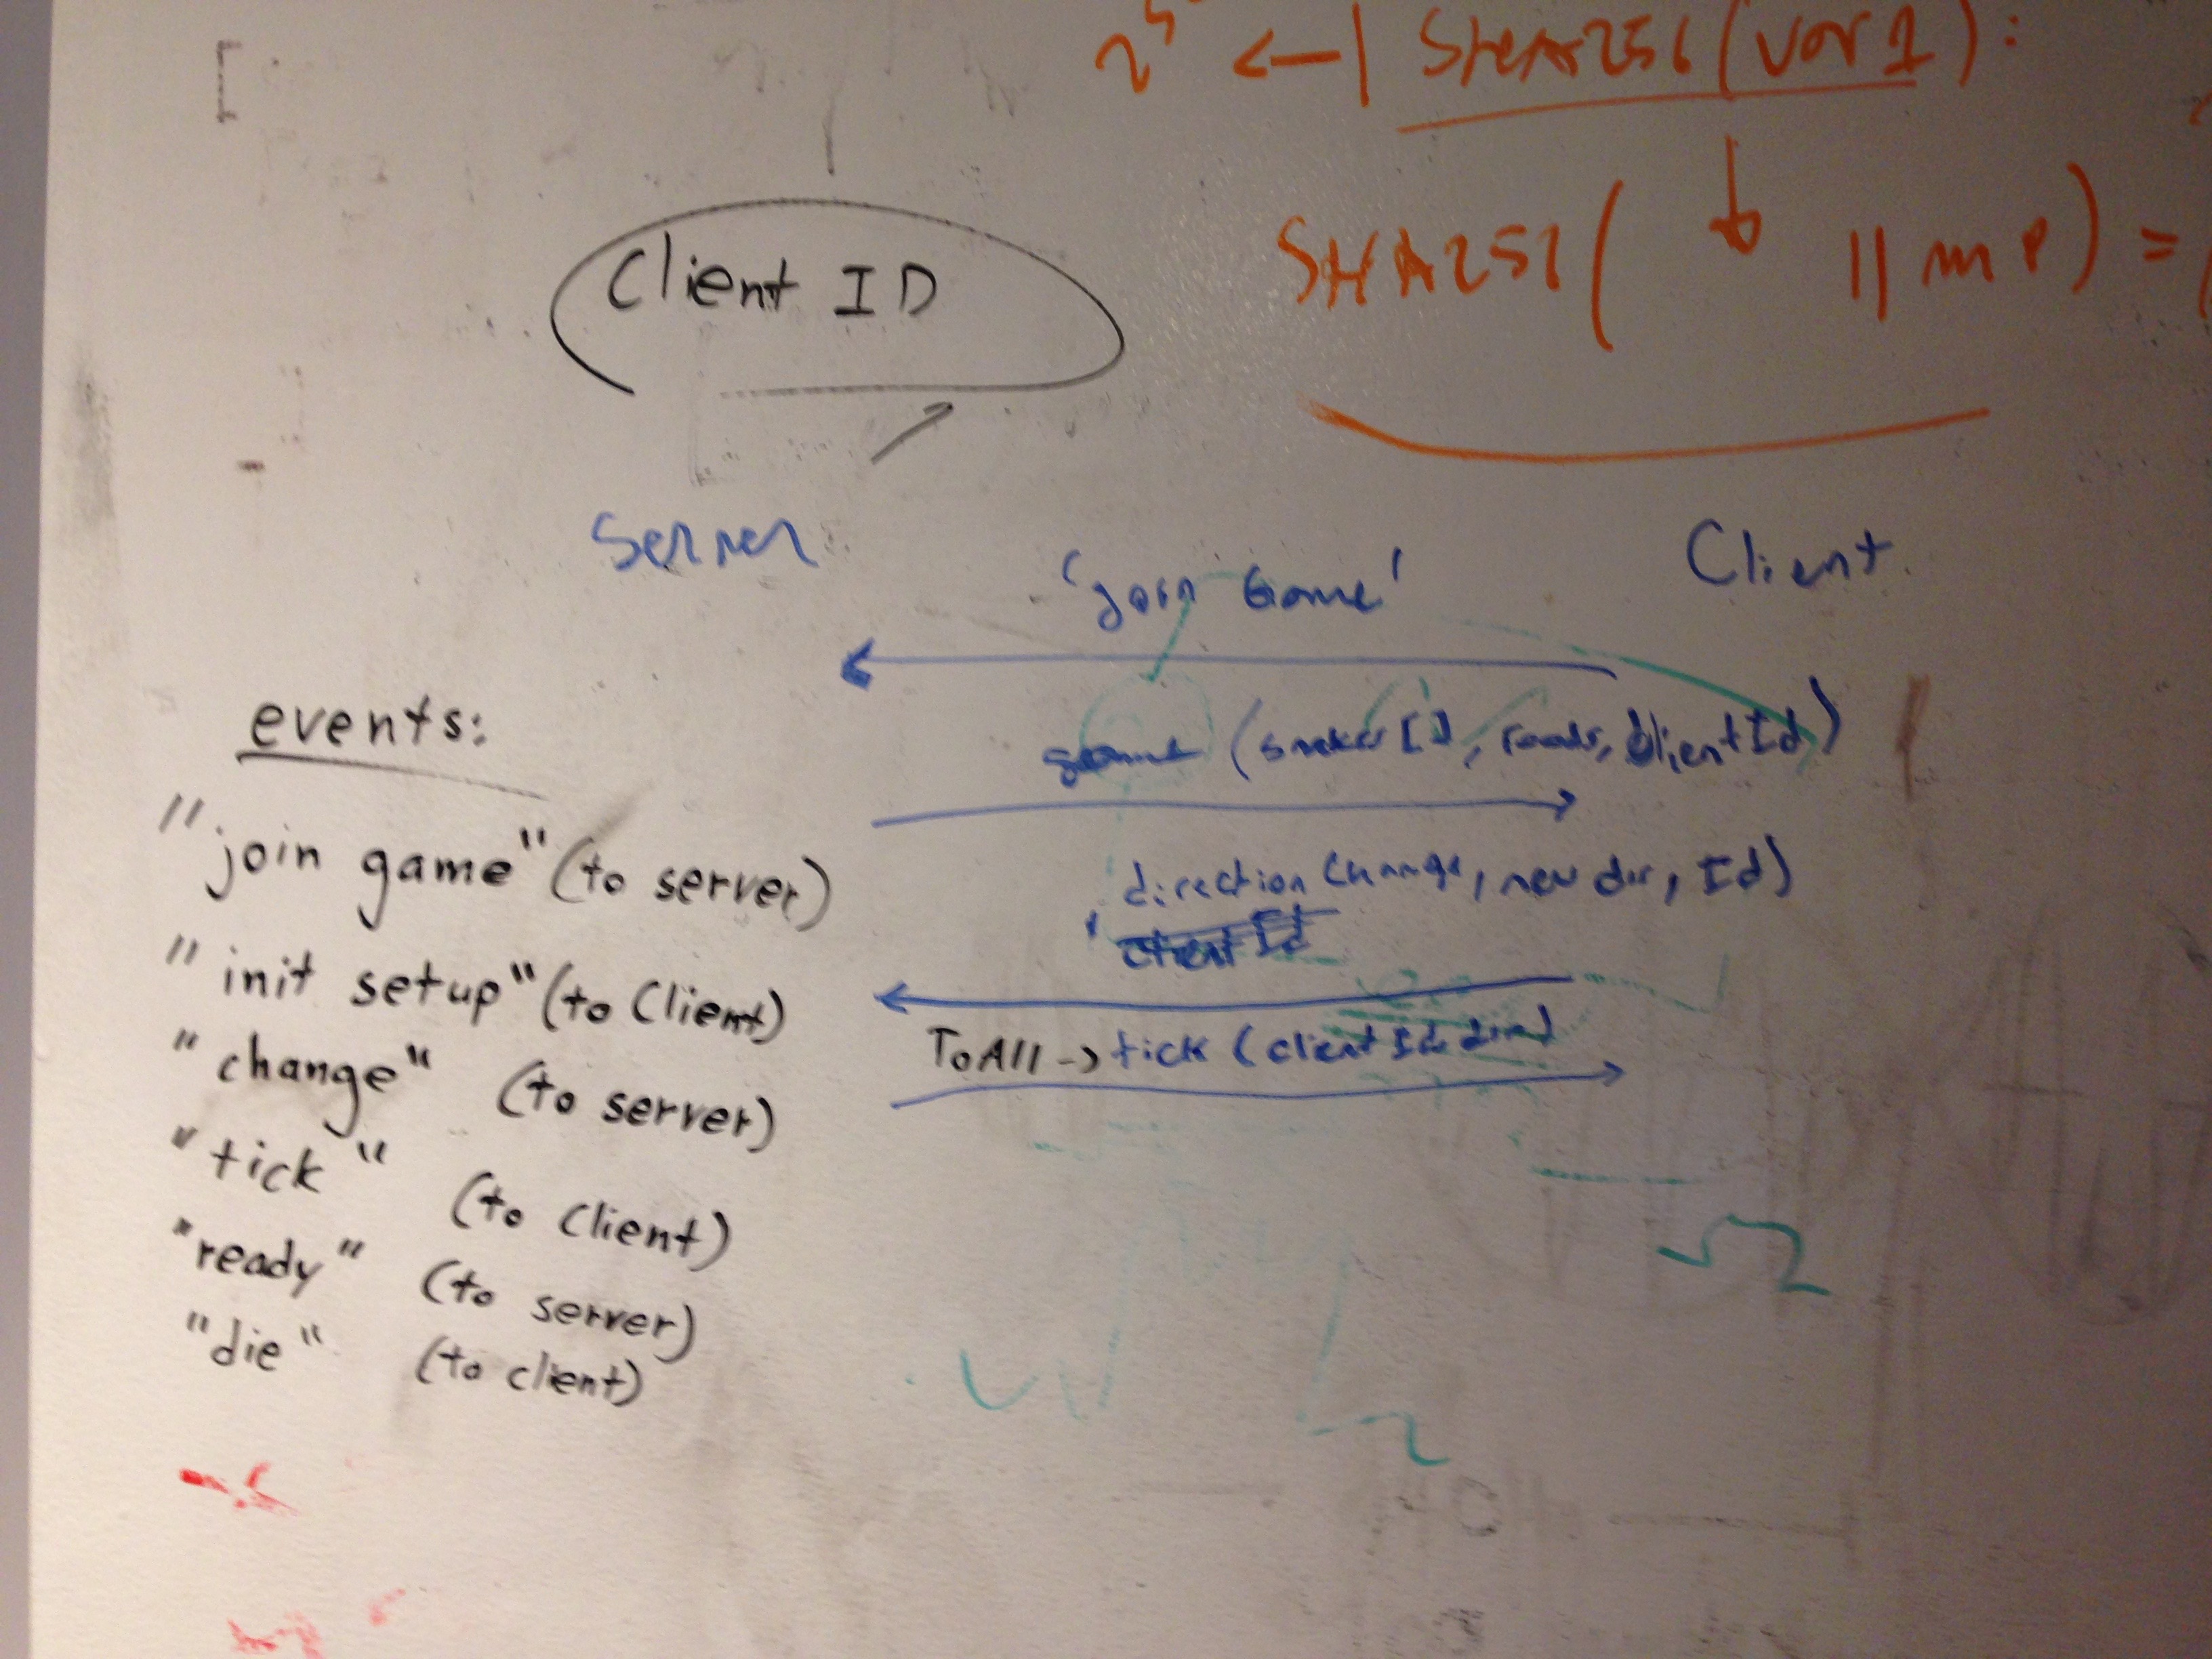 SHA256(var 1):
SHA256( || m p) =
Client ID
Server
Client
'join Game'
(snakes[], foods, clientId)
direction change, new dir, Id)
client Id
To All -> tick (client Id, dir)
events:
"join game" (to server)
"init setup" (to Client)
"change" (to server)
"tick" (to client)
"ready" (to server)
"die" (to client)